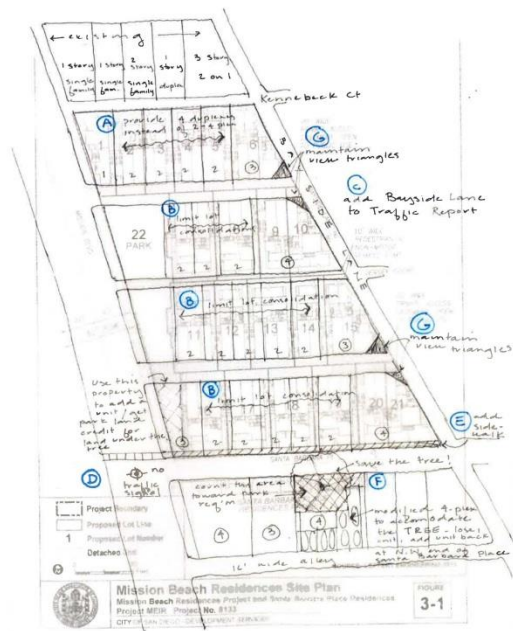 ← existing →
1 story single family
1 story single fam.
2 story single family
1 story duplex
3 story 2 on 1
Kennebeck Ct
A
provide 4 duplexes
instead of 2 - 4 plex
1 2 2 2 2
3
G
maintain
view triangles
C
add Bayside Lane
to Traffic Report
BAYSIDE LANE
22
PARK
B
limit lot
consolidation
9 10
2 2 2 2
4
B
limit lot consolidation
11 12 13 14 15
2 2 2 2
3
G
maintain
view triangles
Use this
property
to add a
unit / get
park land
credit for
land under the
tree
B
limit lot consolidation
17 18 20 21
3 2 2 2 2
4
E
add
side-
walk
D
no
traffic
signal
SANTA BARBARA
save the tree!
count this area
toward park
reqm
F
modified 4-plex
to accomodate
the TREE - lose 1
unit, add unit back
at N.W. end of
Santa Barbara Place
4 3 4
16' wide alley
Project Boundary
Proposed Lot Line
1 Proposed Lot Number
Detached Unit
Mission Beach Residences Site Plan
Mission Beach Residences Project and Santa Barbara Place Residences
Project MEIR Project No. 8133
CITY OF SAN DIEGO - DEVELOPMENT SERVICES
FIGURE
3-1